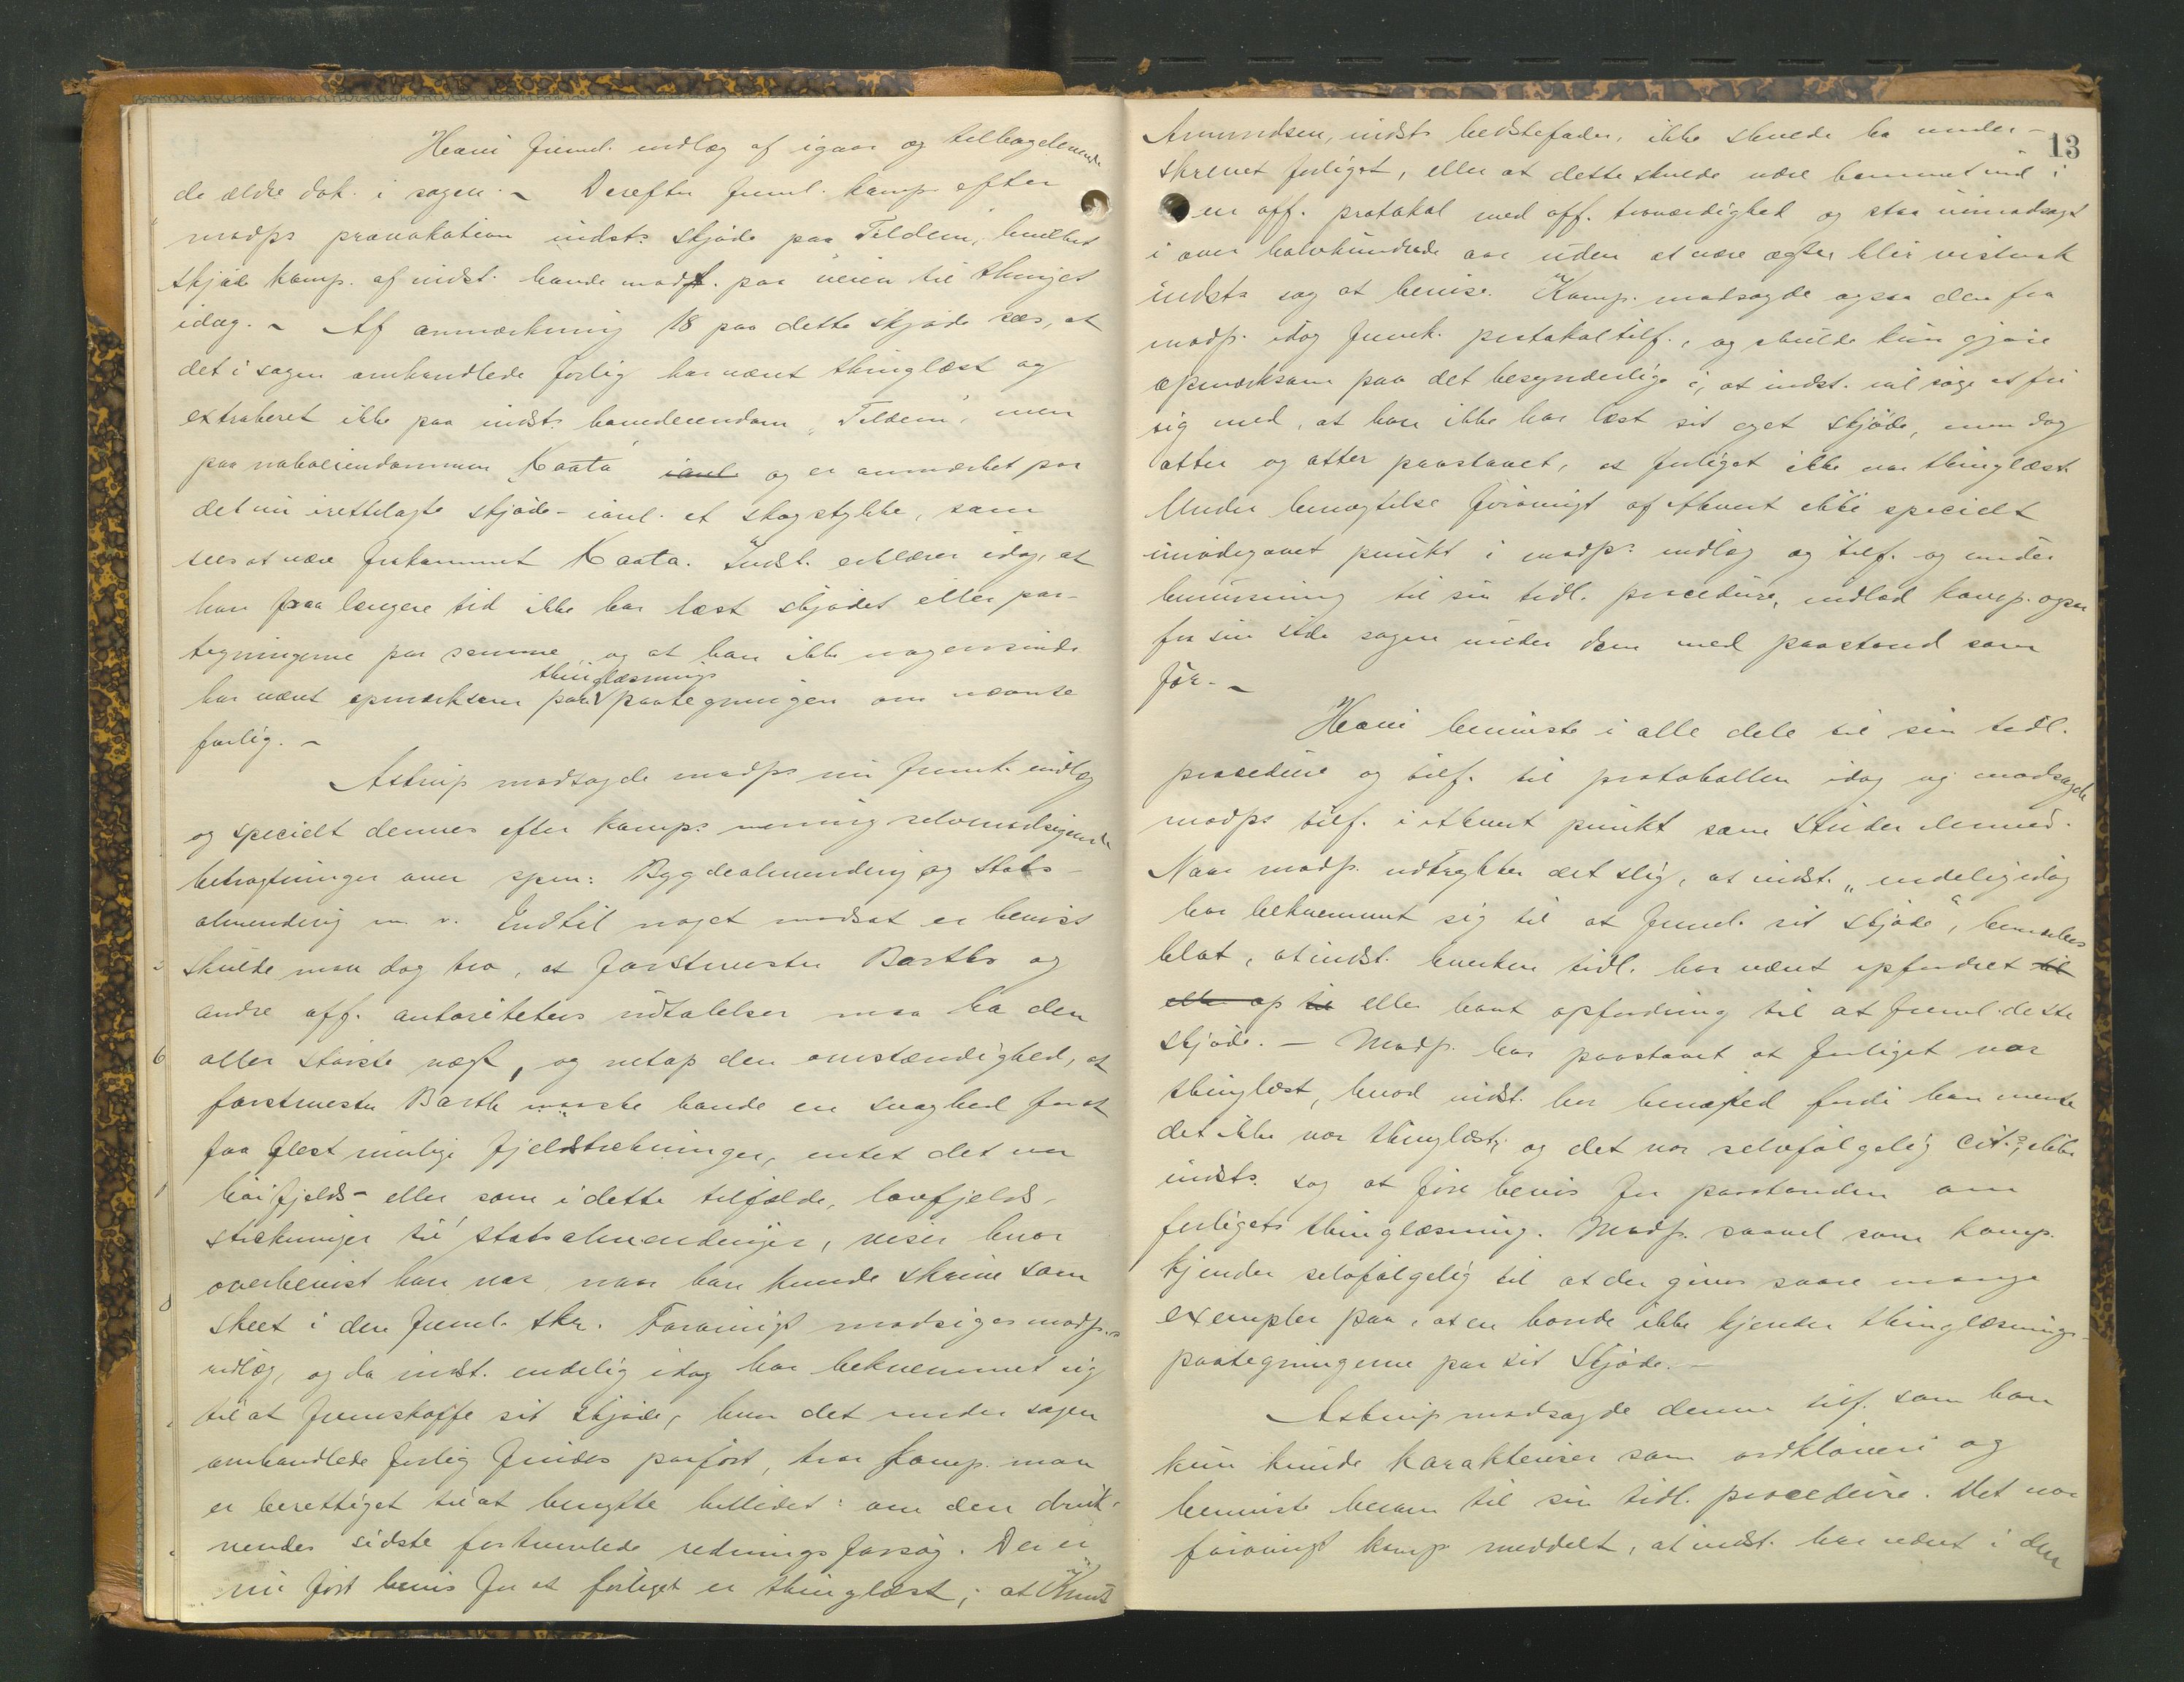 Heani freml. indlæg af igaar og tilbageleverede
de ældre dok. i sagen. - Derefter freml. komp. efter
modps provokation indsts skjøde paa "Teldem", hvilket
skjøde komp. af indst. havde modt. paa veien til thinget
idag. - Af anmærkning 18 paa dette skjøde sees, at
det i sagen omhandlede forlig har været thinglæst og
extraheret ikke paa indsts hovedeiendom "Teldem", men
paa naboeiendommen Kaata og er anmærket paa
det nu irettelagte skjøde - ianl. et skogstykke, som
sees at være frakommet Kaata. Indst. erklærer idag, at
han paa længere tid ikke har læst skjødet eller paa-
tegningerne paa samme, og at han ikke nogensinde
thinglæsnings
har været opmærksom paa paategningen om nævnte
forlig. -
Astrup modsagde modps nu freml. indlæg
og specielt dennes efter komps mening selvmodsigende
betragtninger over spm: Bygdealmending og Stats-
almending m v. Indtil noget modsat er bevist
skulde man dog tro, at forstmester Barths og
andre off. autoriteters udtalelser maa ha den
aller største vægt, og netop den omstændighed, at
forstmester Barth maaske havde en svaghed for at
faa flest mulige fjeldstrækninger, entet det var
høifjelds- eller som i dette tilfælde, lavfjelds-
strækninger til statsalmendinger, viser hvor
overbevist han var, naar han kunde skrive som
skeet i den freml. skr. Forøvrigt modsiges modp.s
indlæg, og da indst. endelig idag har bekvemmet sig
til at fremskaffe sit skjøde, hvor det under sagen
omhandlede forlig findes paaført, tror komp. man
er berettiget til at benytte billedet: om den druk-
nendes sidste fortumlede redningsforsøg. Der er
nu ført bevis for at forliget er thinglæst; at Knut
13
Amundsen, indsts bedstefader, ikke skulde ha under-
skrevet forliget, eller at dette skulde være kommet ind i
en off. protokol med off. troværdighed og staa uimodsagt
i over halvhundrede aar uden at være ægte blir vistnok
indsts sag at bevise. Komp. modsagde ogsaa den fra
modp. idag fremk. protokoltilf., og skulde kun gjøre
opmærksom paa det besynderlige i, at indst. vil søge at fri
sig med, at han ikke har læst sit eget skjøde, men dog
atter og atter paastaaet, at forliget ikke var thinglæst.
Under benægtelse forøvrigt af ethvert ikke specielt
imødegaaet punkt i modps indlæg og tilf. og under
henvisning til sin tidl. procedure, indlod komp. ogsaa
fra sin side sagen under dom med paastand som
før. -
Heani henviste i alle dele til sin tidl.
procedure og tilf. til protokollen idag og modsagde
modps tilf. i ethvert punkt som strider dermed.
Naar modp. udtrykker det slig, at indst. "endelig idag
har bekvemmet sig til at freml. sit skjøde", bemærkes
blot, at indst. hverken tidl. har været opfordret til
eller op til eller havt opfordring til at freml. dette
skjøde. - Modp. har paastaaet at forliget var
thinglæst, hvad indst. har benægted fordi han mente
det ikke var thinglæst; og det var selvfølgelig cit.s, ikke
indsts. sag at føre bevis for paastanden om
forligets thinglæsning. Modp. saavel som komp.
kjender selvfølgelig til at der gives saare mange
exempler paa, at en bonde ikke kjender thinglæsnings-
paategningerne paa sit Skjøde. -
Astrup modsagde denne tilf. som han
kun kunde karakterisere som ordkløveri og
henviste hesom til sin tidl. procedure. Det var
forøvrigt komp. meddelt, at indst. har været i den